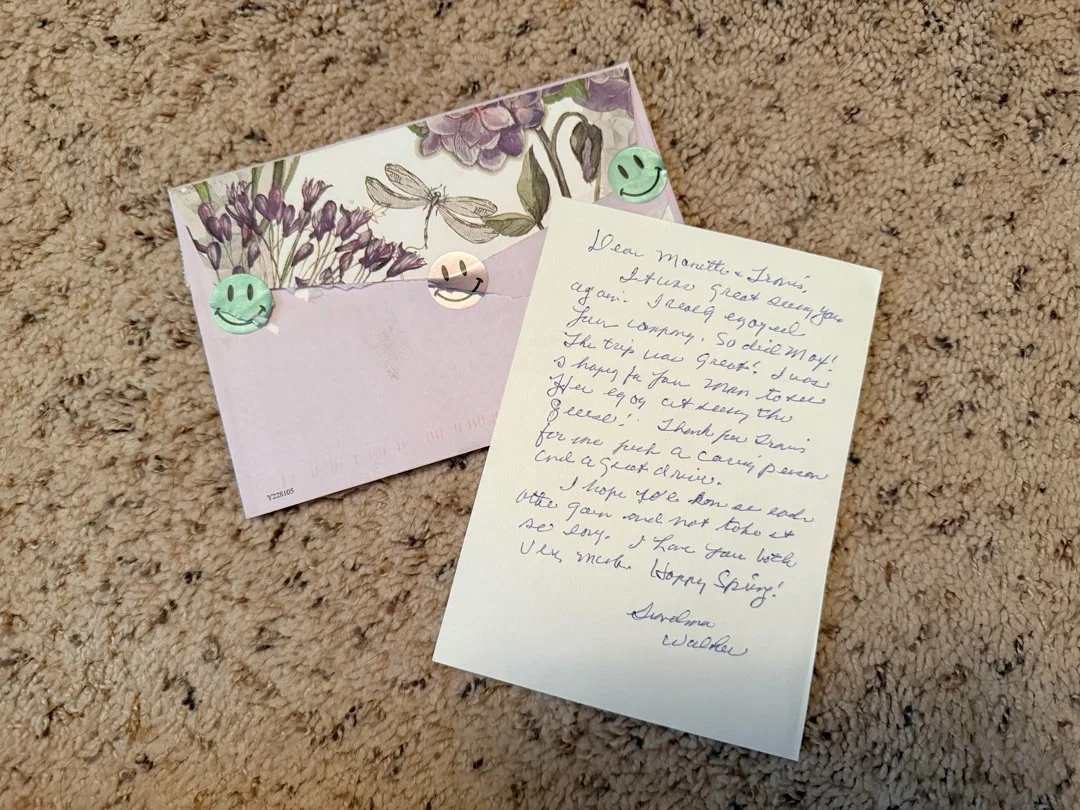 Dear Manette & Travis,
It was great seeing you
again. I really enjoyed
your company. So did Max!
The trip was Great! I was
so happy for your mom to see
Her enjoy at seeing the
Geese! Thank you Travis
for me such a caring person
and a great driver.
I hope we'll see each
other again and not take it
so long. I Love you both
Very much. Happy Spring!
Grandma
Walker
Y228105